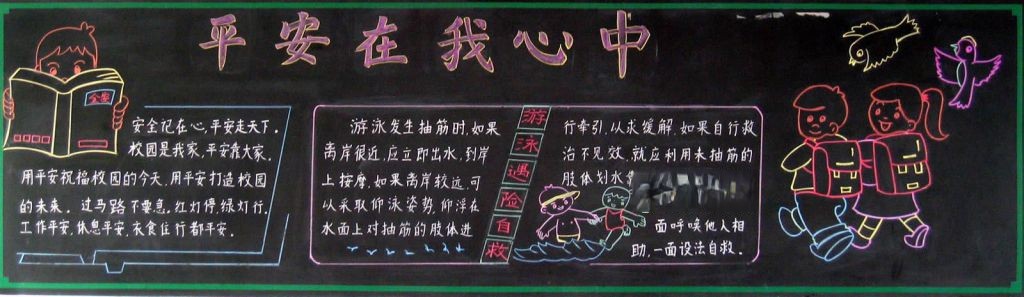 平安在我心中
安全
安全记在心,平安走天下.
校园是我家,平安靠大家.
用平安祝福校园的今天,用平安打造校园
的未来. 过马路不要急,红灯停,绿灯行.
工作平安,休息平安,衣食住行都平安.
游泳发生抽筋时,如果
离岸很近,应立即出水,到岸
上按摩,如果离岸较远,可
以采取仰泳姿势,仰浮在
水面上对抽筋的肢体进
游泳遇险自救
行牵引,以求缓解,如果自行救
治不见效,就应利用未抽筋的
肢体划水
面呼唤他人相
助,一面设法自救.